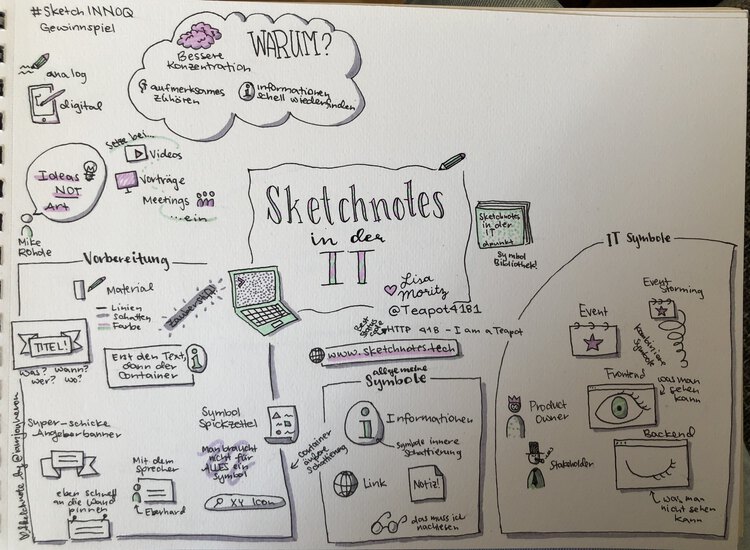 #SketchINNOQ
Gewinnspiel
WARUM?
Bessere
Konzentration
aufmerksames
zuhören
informationen
schell wiederfinden
analog
digital
Ideas
NOT
Art
Mike
Rohde
setze bei...
Videos
Vorträge
Meetings
...ein
Sketchnotes
in der
IT
Lisa
Moritz
@Teapot4181
HTTP 418 - I am a Teapot
www.sketchnotes.tech
Sketchnotes
in der
IT
dpunkt
Symbol
Bibliothek!
Vorbereitung
Material
Linien
Schatten
Farbe
Zauberstift
TITEL!
was? wann?
wer? wo?
Erst den Text,
dann der
Container
Super-schicke
Angeberbanner
eben schnell
an die Wand
pinnen
Mit dem
Sprecher
Eberhard
Symbol
Spickzettel
Man braucht
nicht für
ALLES ein
Symbol
XY Icon
Container
äußere
Schattierung
allgemeine
Symbole
Informationen
Symbole innere
Schattierung
Link
Notiz!
das muss ich
nachlesen
IT Symbole
Event
Event
Storming
kombiniere
Symbole
Frontend
was man
sehen
kann
Product
Owner
Stakeholder
Backend
was man
nicht sehen
kann